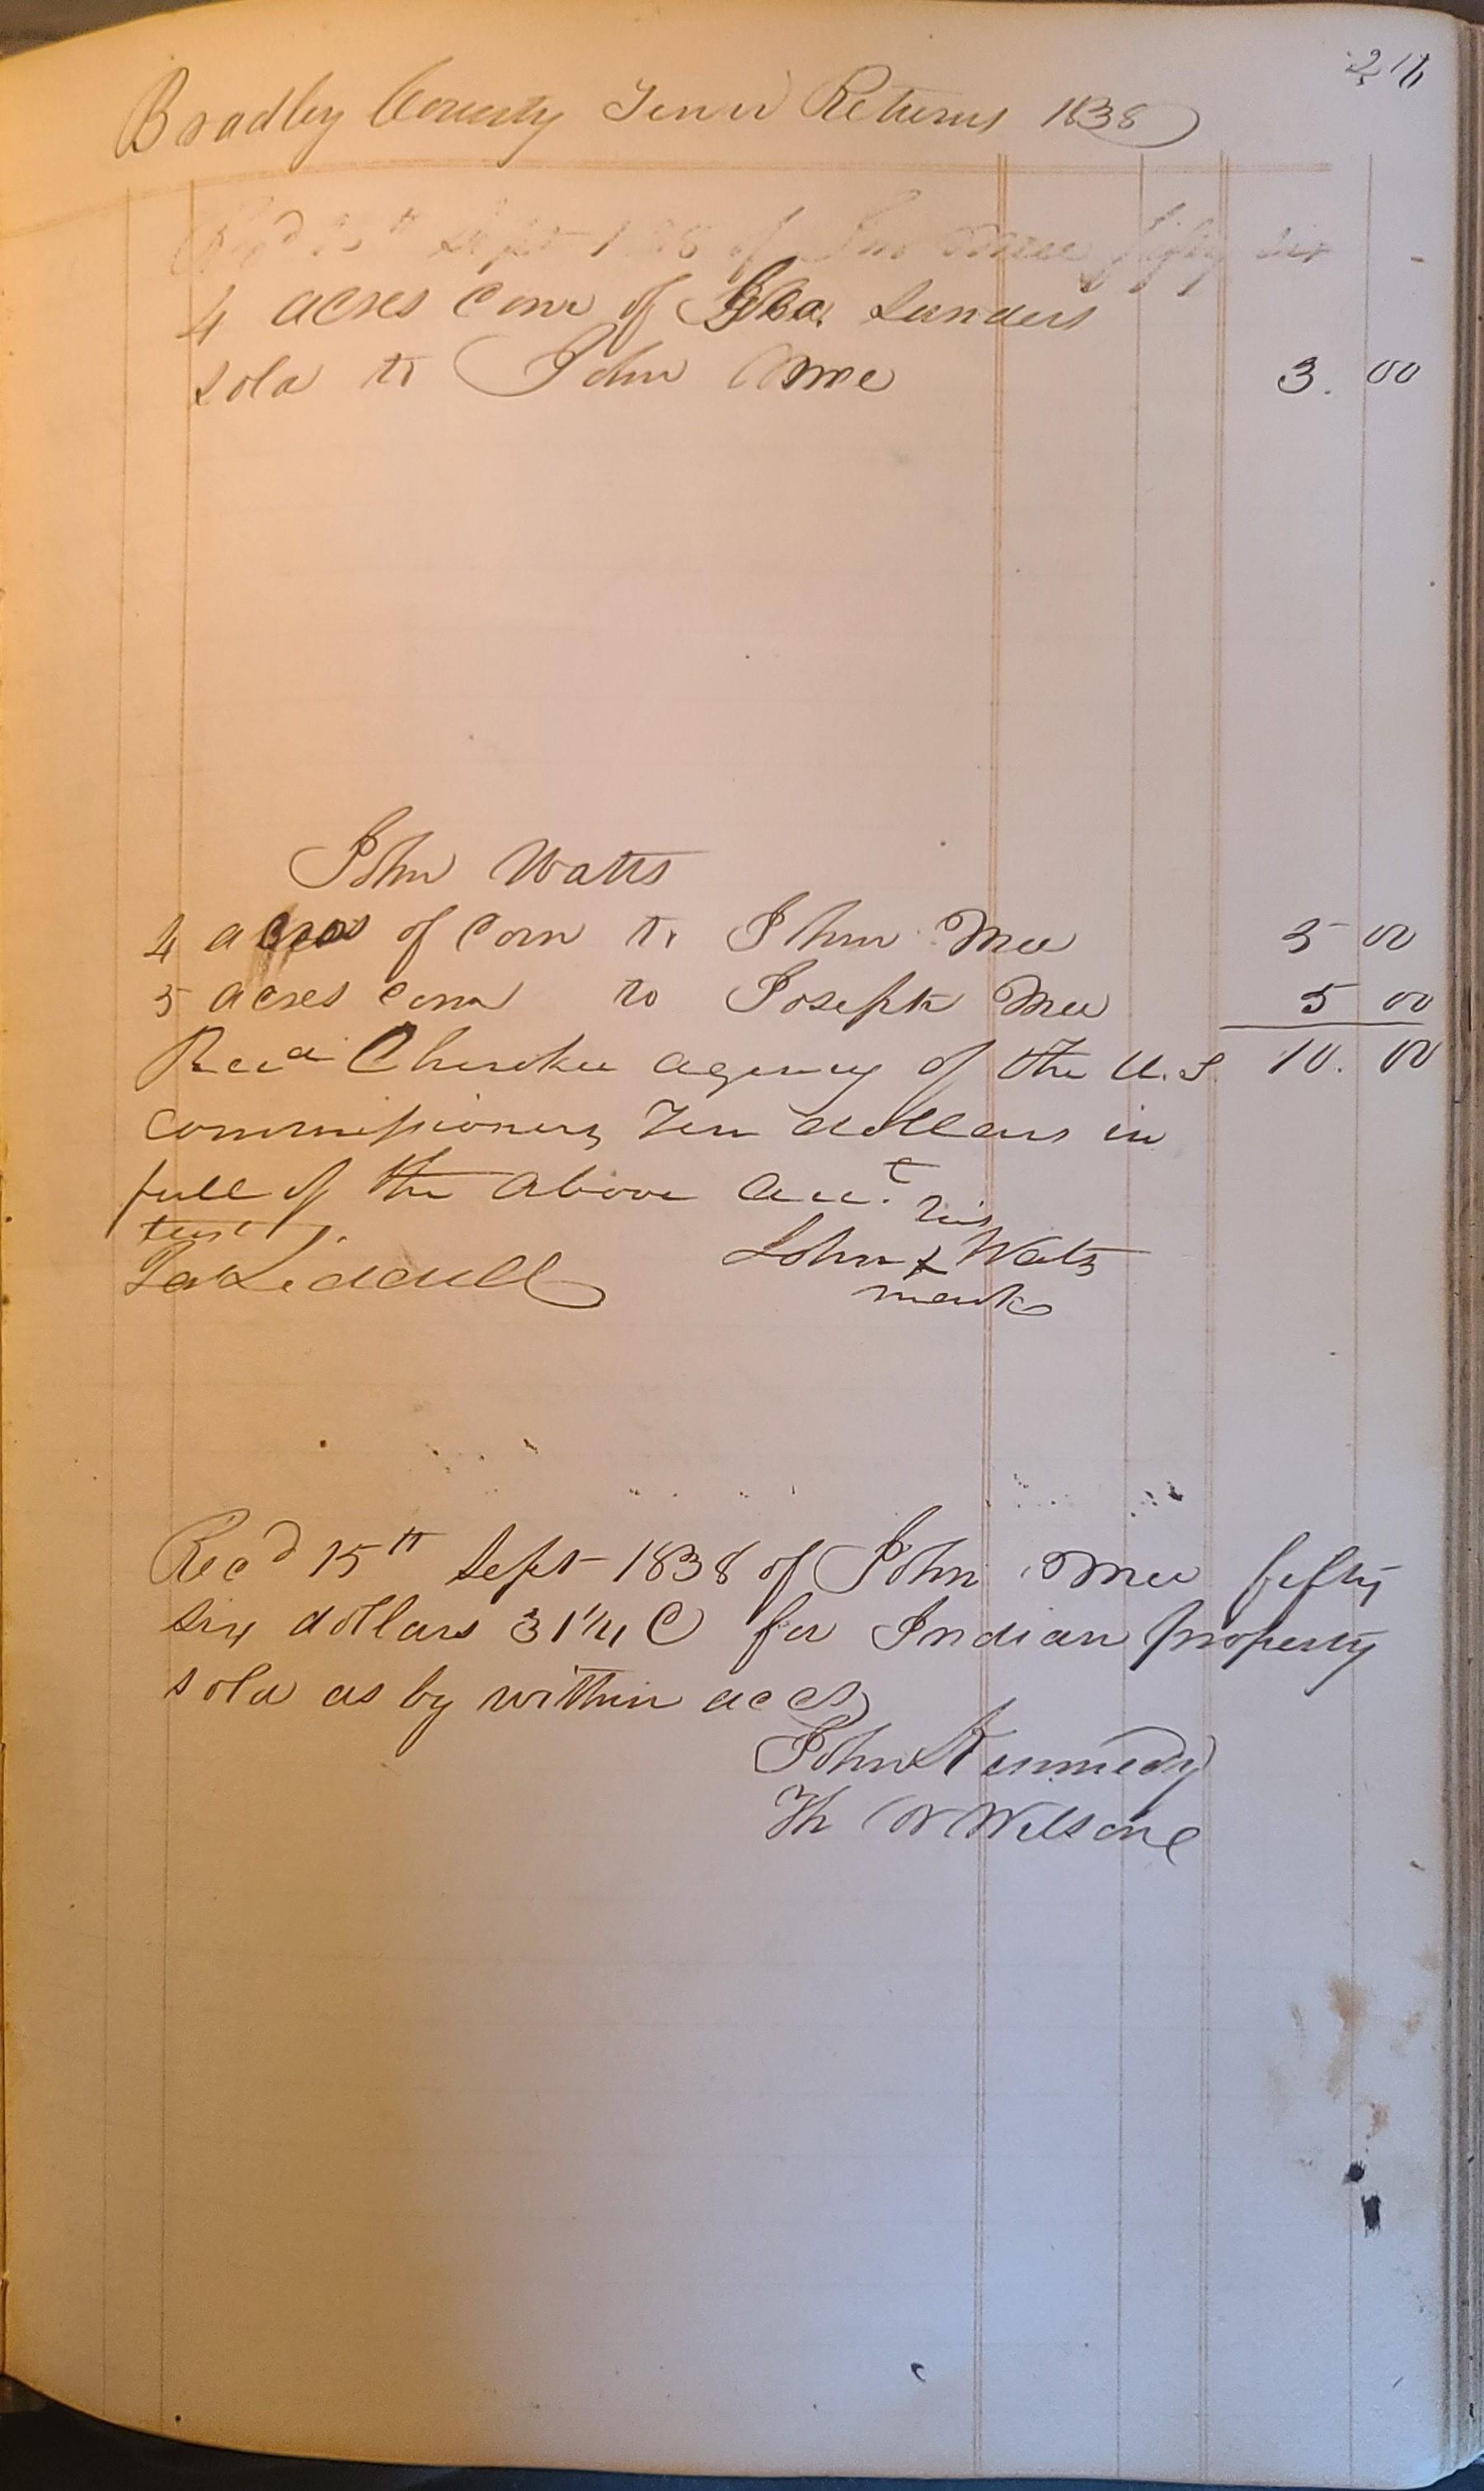 216
Bradley County Tenn Returns 1838
Rec'd 15th Sept 1838 of Jno Mee fifty six
4 acres corn of Geo. Sanders
sold to John Mee 3. 00
John Watts
4 acres of corn to John Mee 5 00
5 acres corn to Joseph Mee 5 00
Recd Cherokee agency of the U.S. 10. 00
Commissioners Ten dollars in
full of the above acct.
test his
John x Watts
mark
Rec'd 15th Sept 1838 of John Mee fifty
six dollars 31 1/4 C for Indian property
sold as by within acct
John Kennedy
Th W Willsone